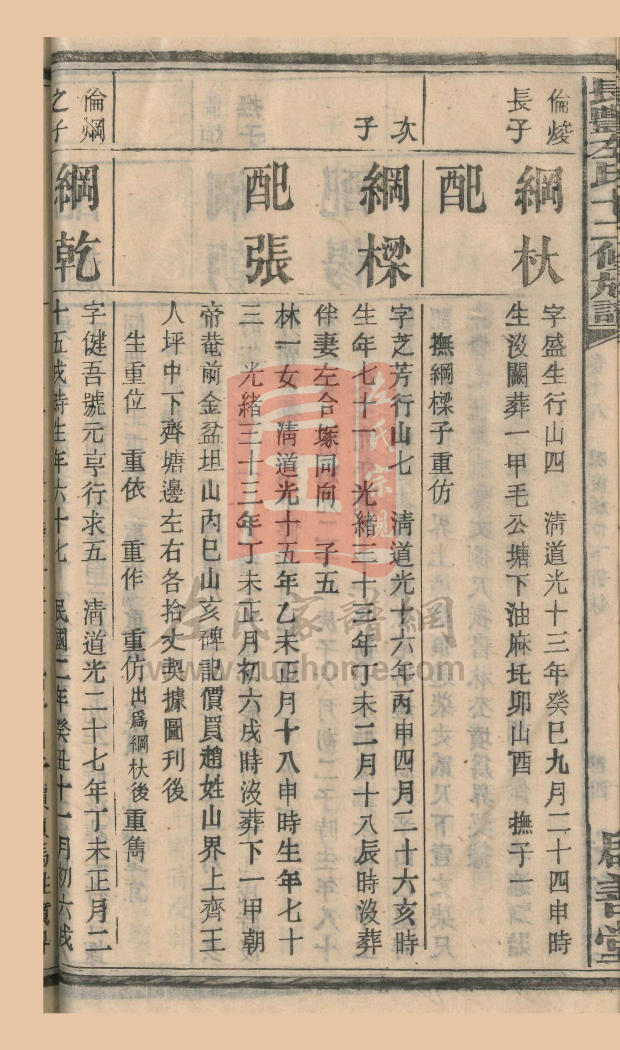 長豐左氏十二修族譜
居善堂
倫煖
長子
綱杕
字盛生行山四　清道光十三年癸巳九月二十四申時
生沒闕葬一甲毛公塘下油麻圫卯山酉　撫子一
配
撫綱樑子重仿
次
子
綱樑
字芝芳行山七　清道光十六年丙申四月二十六亥時
生年七十一　光緒三十三年丁未二月十八辰時沒葬
伴妻左合塚同向　子五
配張
林一女　清道光十五年乙未正月十八申時生年七十
三　光緒三十三年丁未正月初六戌時沒葬下一甲朝
帝菴前金盆坦山內巳山亥碑記價買趙姓山界上齊王
人坪中下齊塘邊左右各拾丈契據圖刊後
生重位　重依　重作　重仿出為綱杕後重雋
倫焵
之子
綱乾
字健吾號元亨行求五　清道光二十七年丁未正月二
十五戌時生年六十七　民國二年癸丑十一月初六戌
左氏宗親
左氏家譜網
www.zuqhome.com